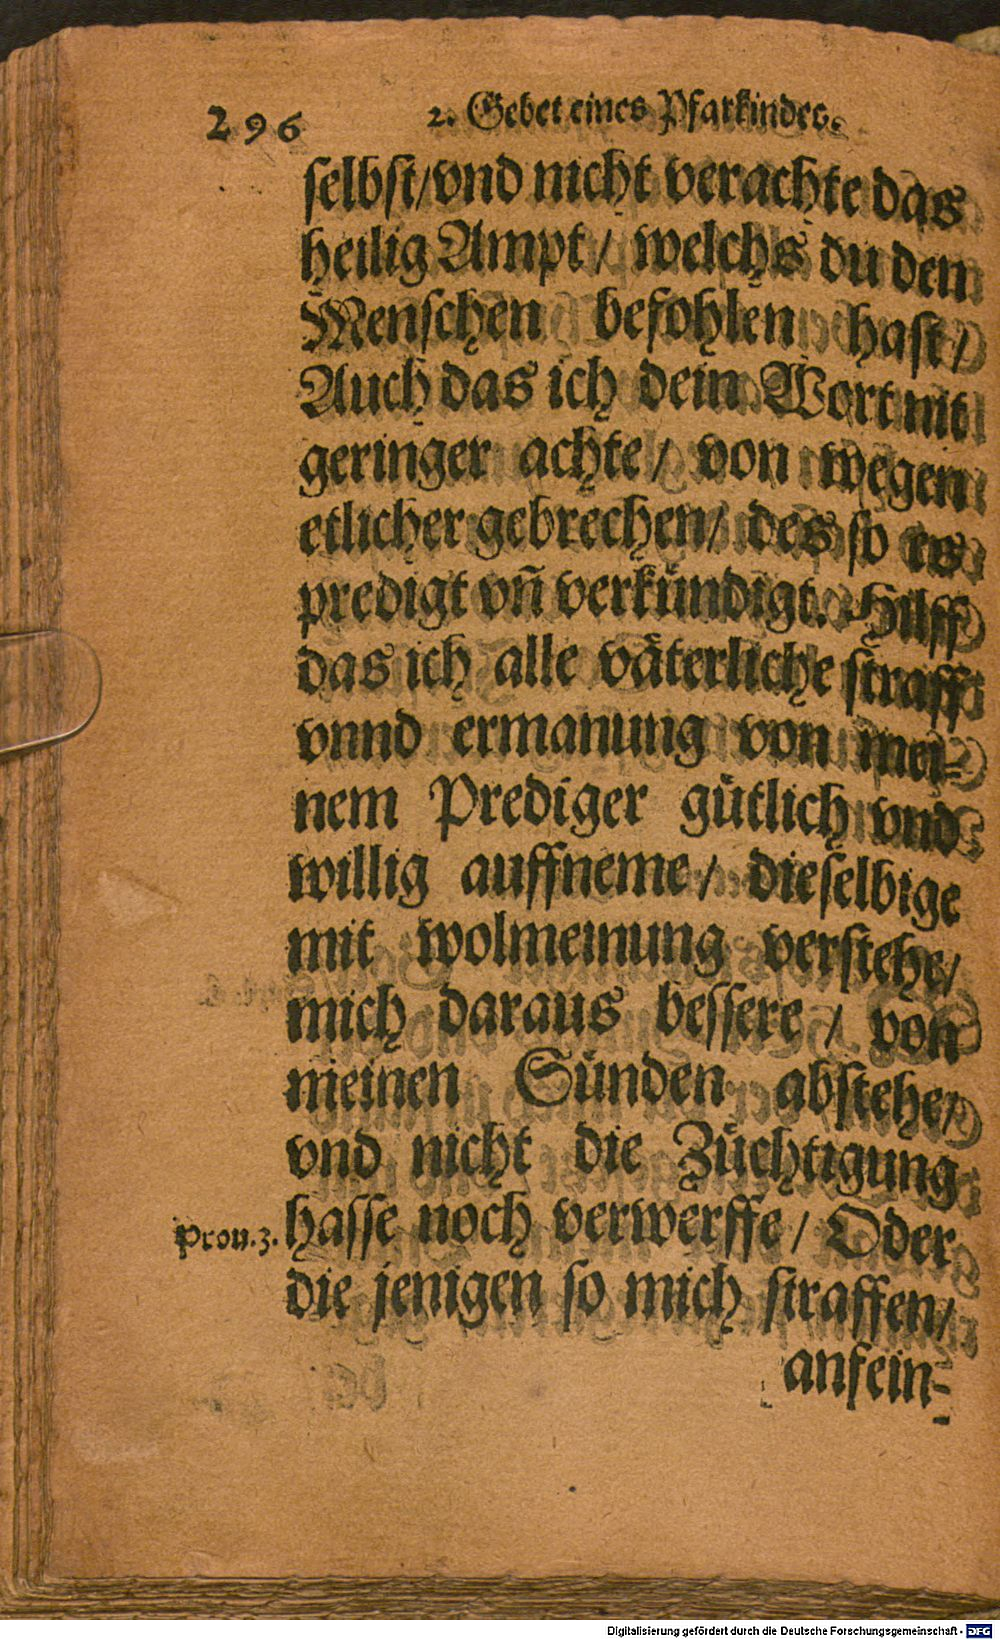 296 2. Gebet eines Pfarkindes.
selbst/vnd nicht verachte das
heilig Ampt / welchs du den
Menschen befohlen hast /
Auch das ich dein Wort nit
geringer achte / von wegen
etlicher gebrechen/ des so es
predigt vñ verkündigt. Hilff
das ich alle väterliche straff
vnnd ermanung von mei-
nem Prediger gütlich vnd
willig auffneme / dieselbige
mit wolmeinung verstehe/
mich daraus bessere / von
meinen Sünden abstehe/
vnd nicht die Züchtigung
Prou.3. hasse noch verwerffe / Oder
die jenigen so mich straffen/
anfein-
Digitalisierung gefördert durch die Deutsche Forschungsgemeinschaft - DFG